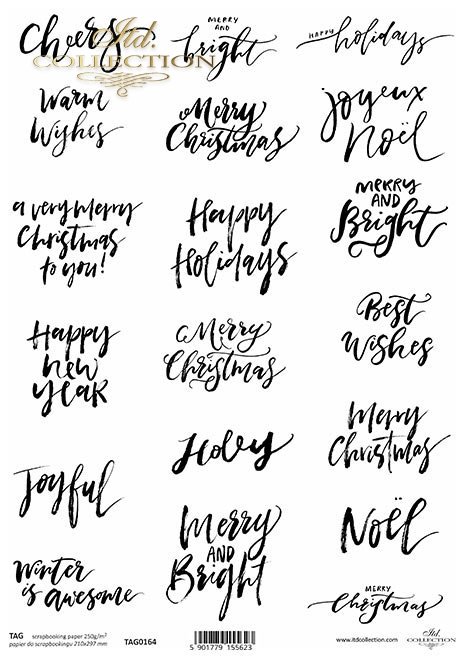 Cheers
Itd.
COLLECTION
MERRY
AND
bright
HAPPY holidays
Warm
Wishes
Merry
Christmas
joyeux
Noël
a very Merry
Christmas
to you!
Happy
Holidays
MERRY
AND
Bright
Happy
new
yeaR
Merry
Christmas
Best
Wishes
Joyful
Holly
Merry
Christmas
Winter
is awesome
Merry
AND
Bright
Noël
MERRY
Christmas
TAG scrapbooking paper 250g/m²
papier do scrapbookingu 210x297 mm
TAG0164
5 901779 155623
www.itdcollection.com
Itd.
COLLECTION